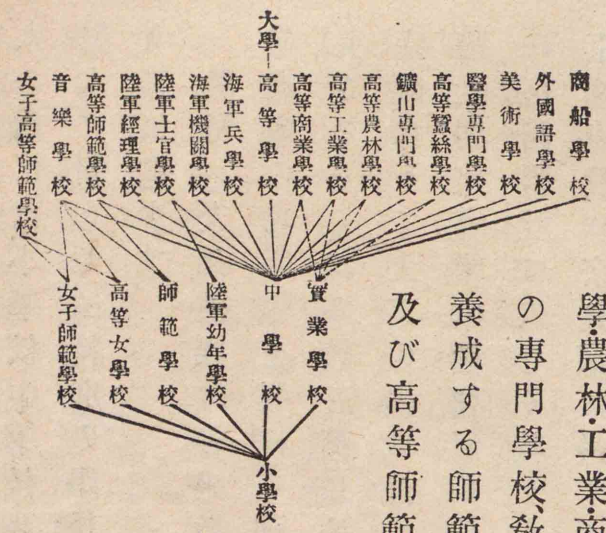 大學
商船學校
外國語學校
美術學校
醫學專門學校
高等蠶絲學校
鑛山專門學校
高等農林學校
高等工業學校
高等商業學校
高等學校
海軍兵學校
海軍機關學校
陸軍士官學校
陸軍經理學校
高等師範學校
音樂學校
女子高等師範學校
實業學校
中學校
陸軍幼年學校
師範學校
高等女學校
女子師範學校
小學校
學・農林・工業・商
の專門學校、敎
養成する師範
及び高等師範